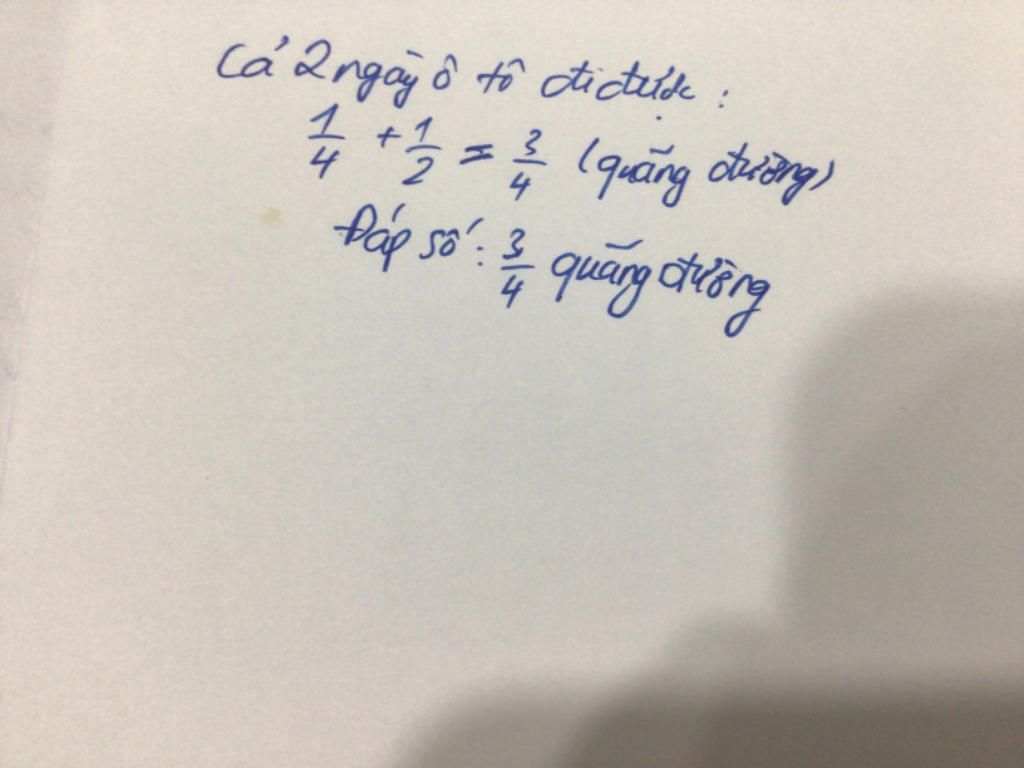 Cả 2 ngày ô tô đi được :
1/4 + 1/2 = 3/4 (quãng đường)
Đáp số : 3/4 quãng đường